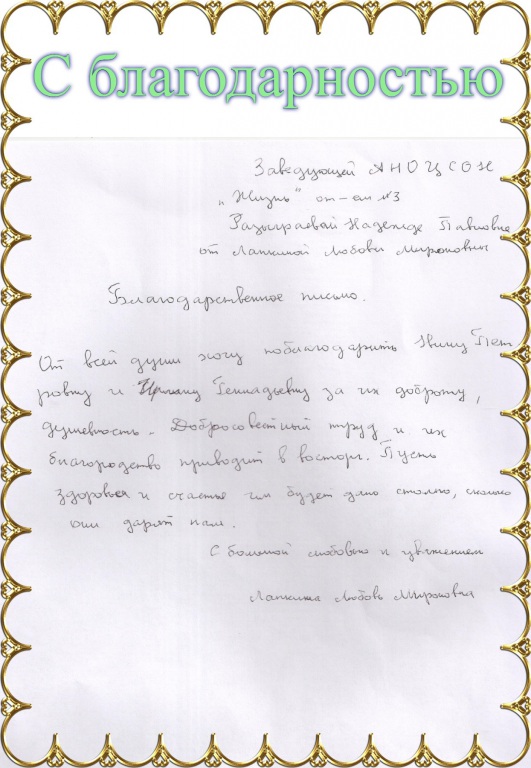 С благодарностью
Заведующей АНОЦСОН
"Жизнь" от-ем №3
Разыграевой Надежде Павловне
от Лапкиной Любови Мироновны
Благодарственное письмо.
От всей души хочу поблагодарить Нину Пет
ровну и Ирину Геннадьевну за их доброту,
душевность. Добросовестный труд и их
благородство приводит в восторг. Пусть
здоровья и счастья им будет дано столько, сколько
они дарят нам.
С большой любовью и уважением
Лапкина Любовь Мироновна